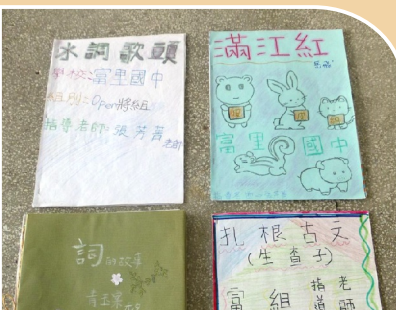 水調歌頭
學校:富里國中
組別:Open將組
指導老師:張芳菁
老師
滿江紅
富里
國中
詞的故事
青玉案
扎根古文
(生查子)
富
組
指導
老師